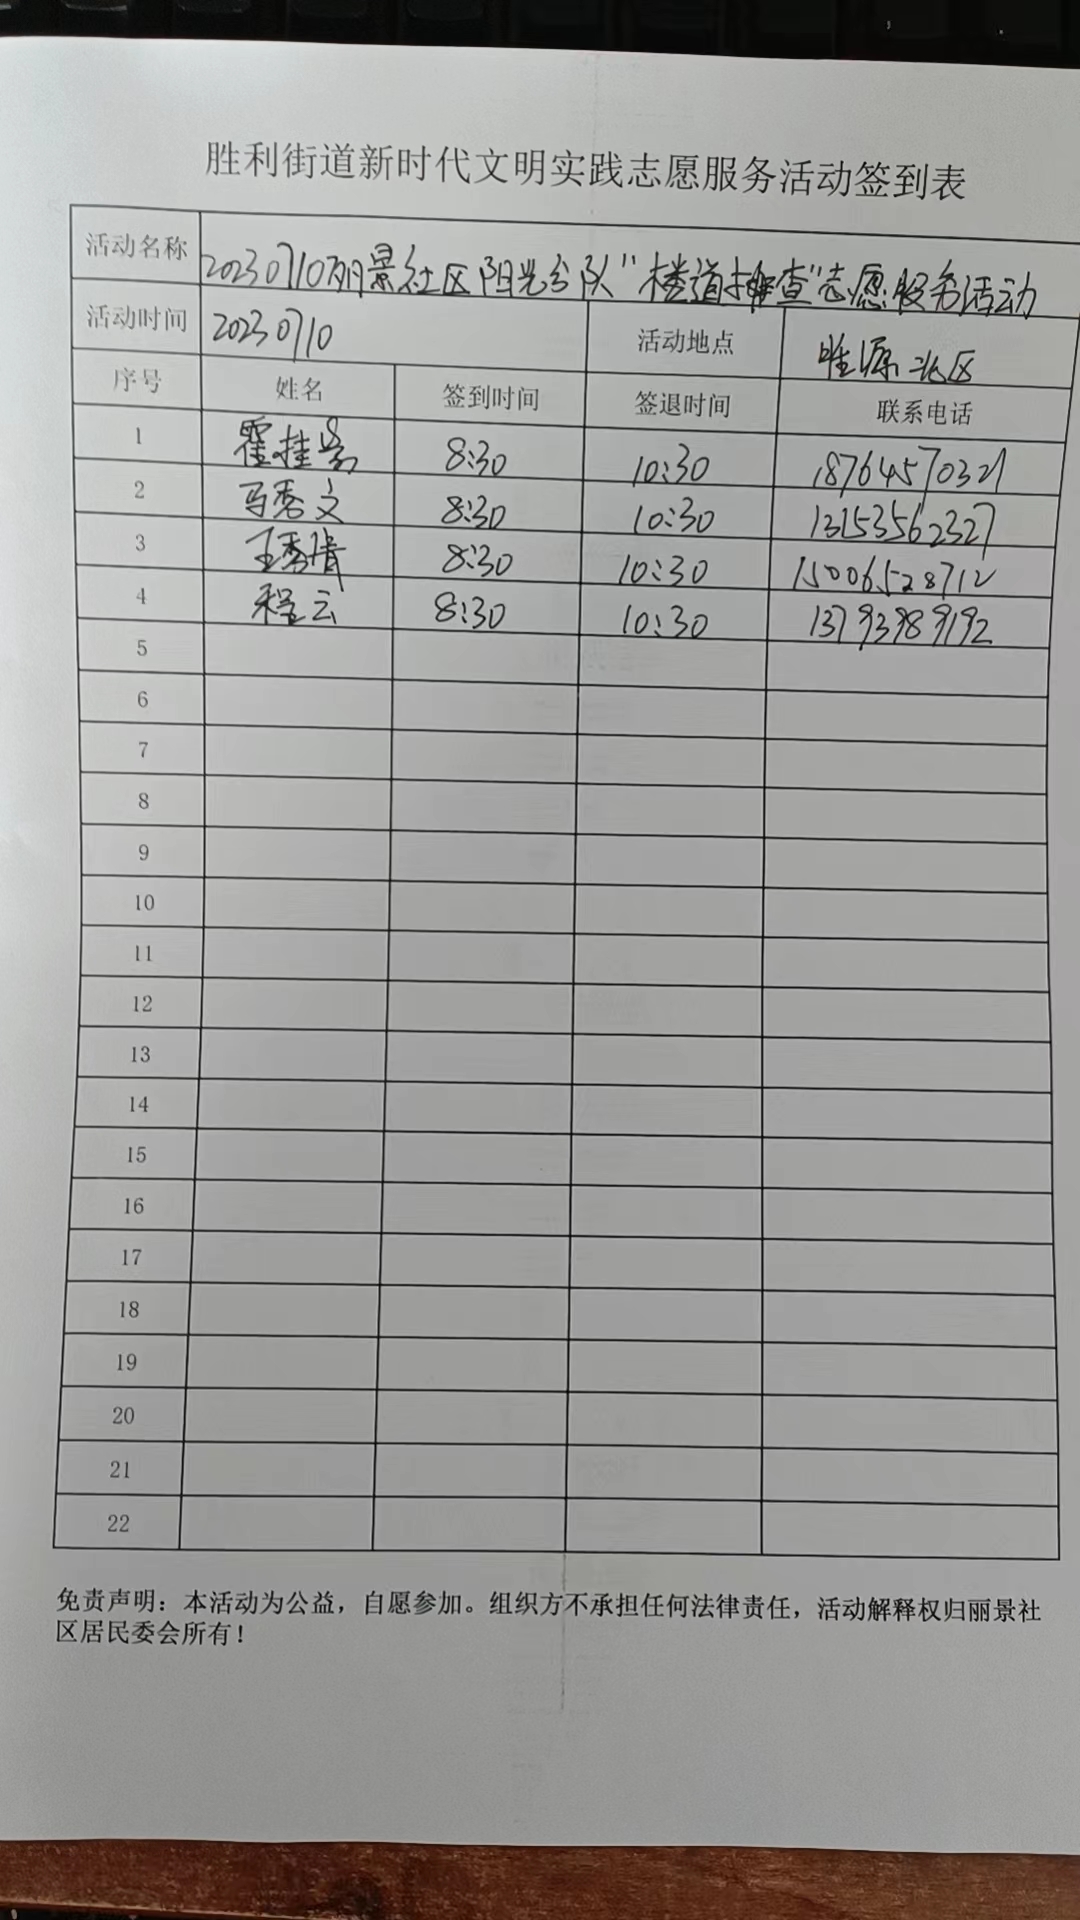 胜利街道新时代文明实践志愿服务活动签到表
活动名称 20230710丽景社区阳光分队“楼道排查”志愿服务活动
活动时间 20230710 活动地点 北区
序号 姓名 签到时间 签退时间 联系电话
1 霍桂 8:30 10:30 18764570321
2 马秀文 8:30 10:30 13153562327
3 王秀 8:30 10:30 15006528712
4 程云 8:30 10:30 13793989192
5
6
7
8
9
10
11
12
13
14
15
16
17
18
19
20
21
22
免责声明：本活动为公益，自愿参加。组织方不承担任何法律责任，活动解释权归丽景社
区居民委会所有！